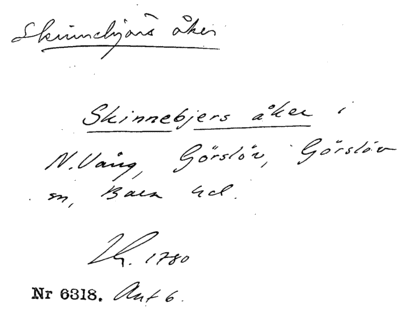 Skinnebjärs åker
Skinnebjers åker i
N. Vång, Görslöv, Görslöv
sn, Bara hd.
1780
Nr 6318. Akt 6.